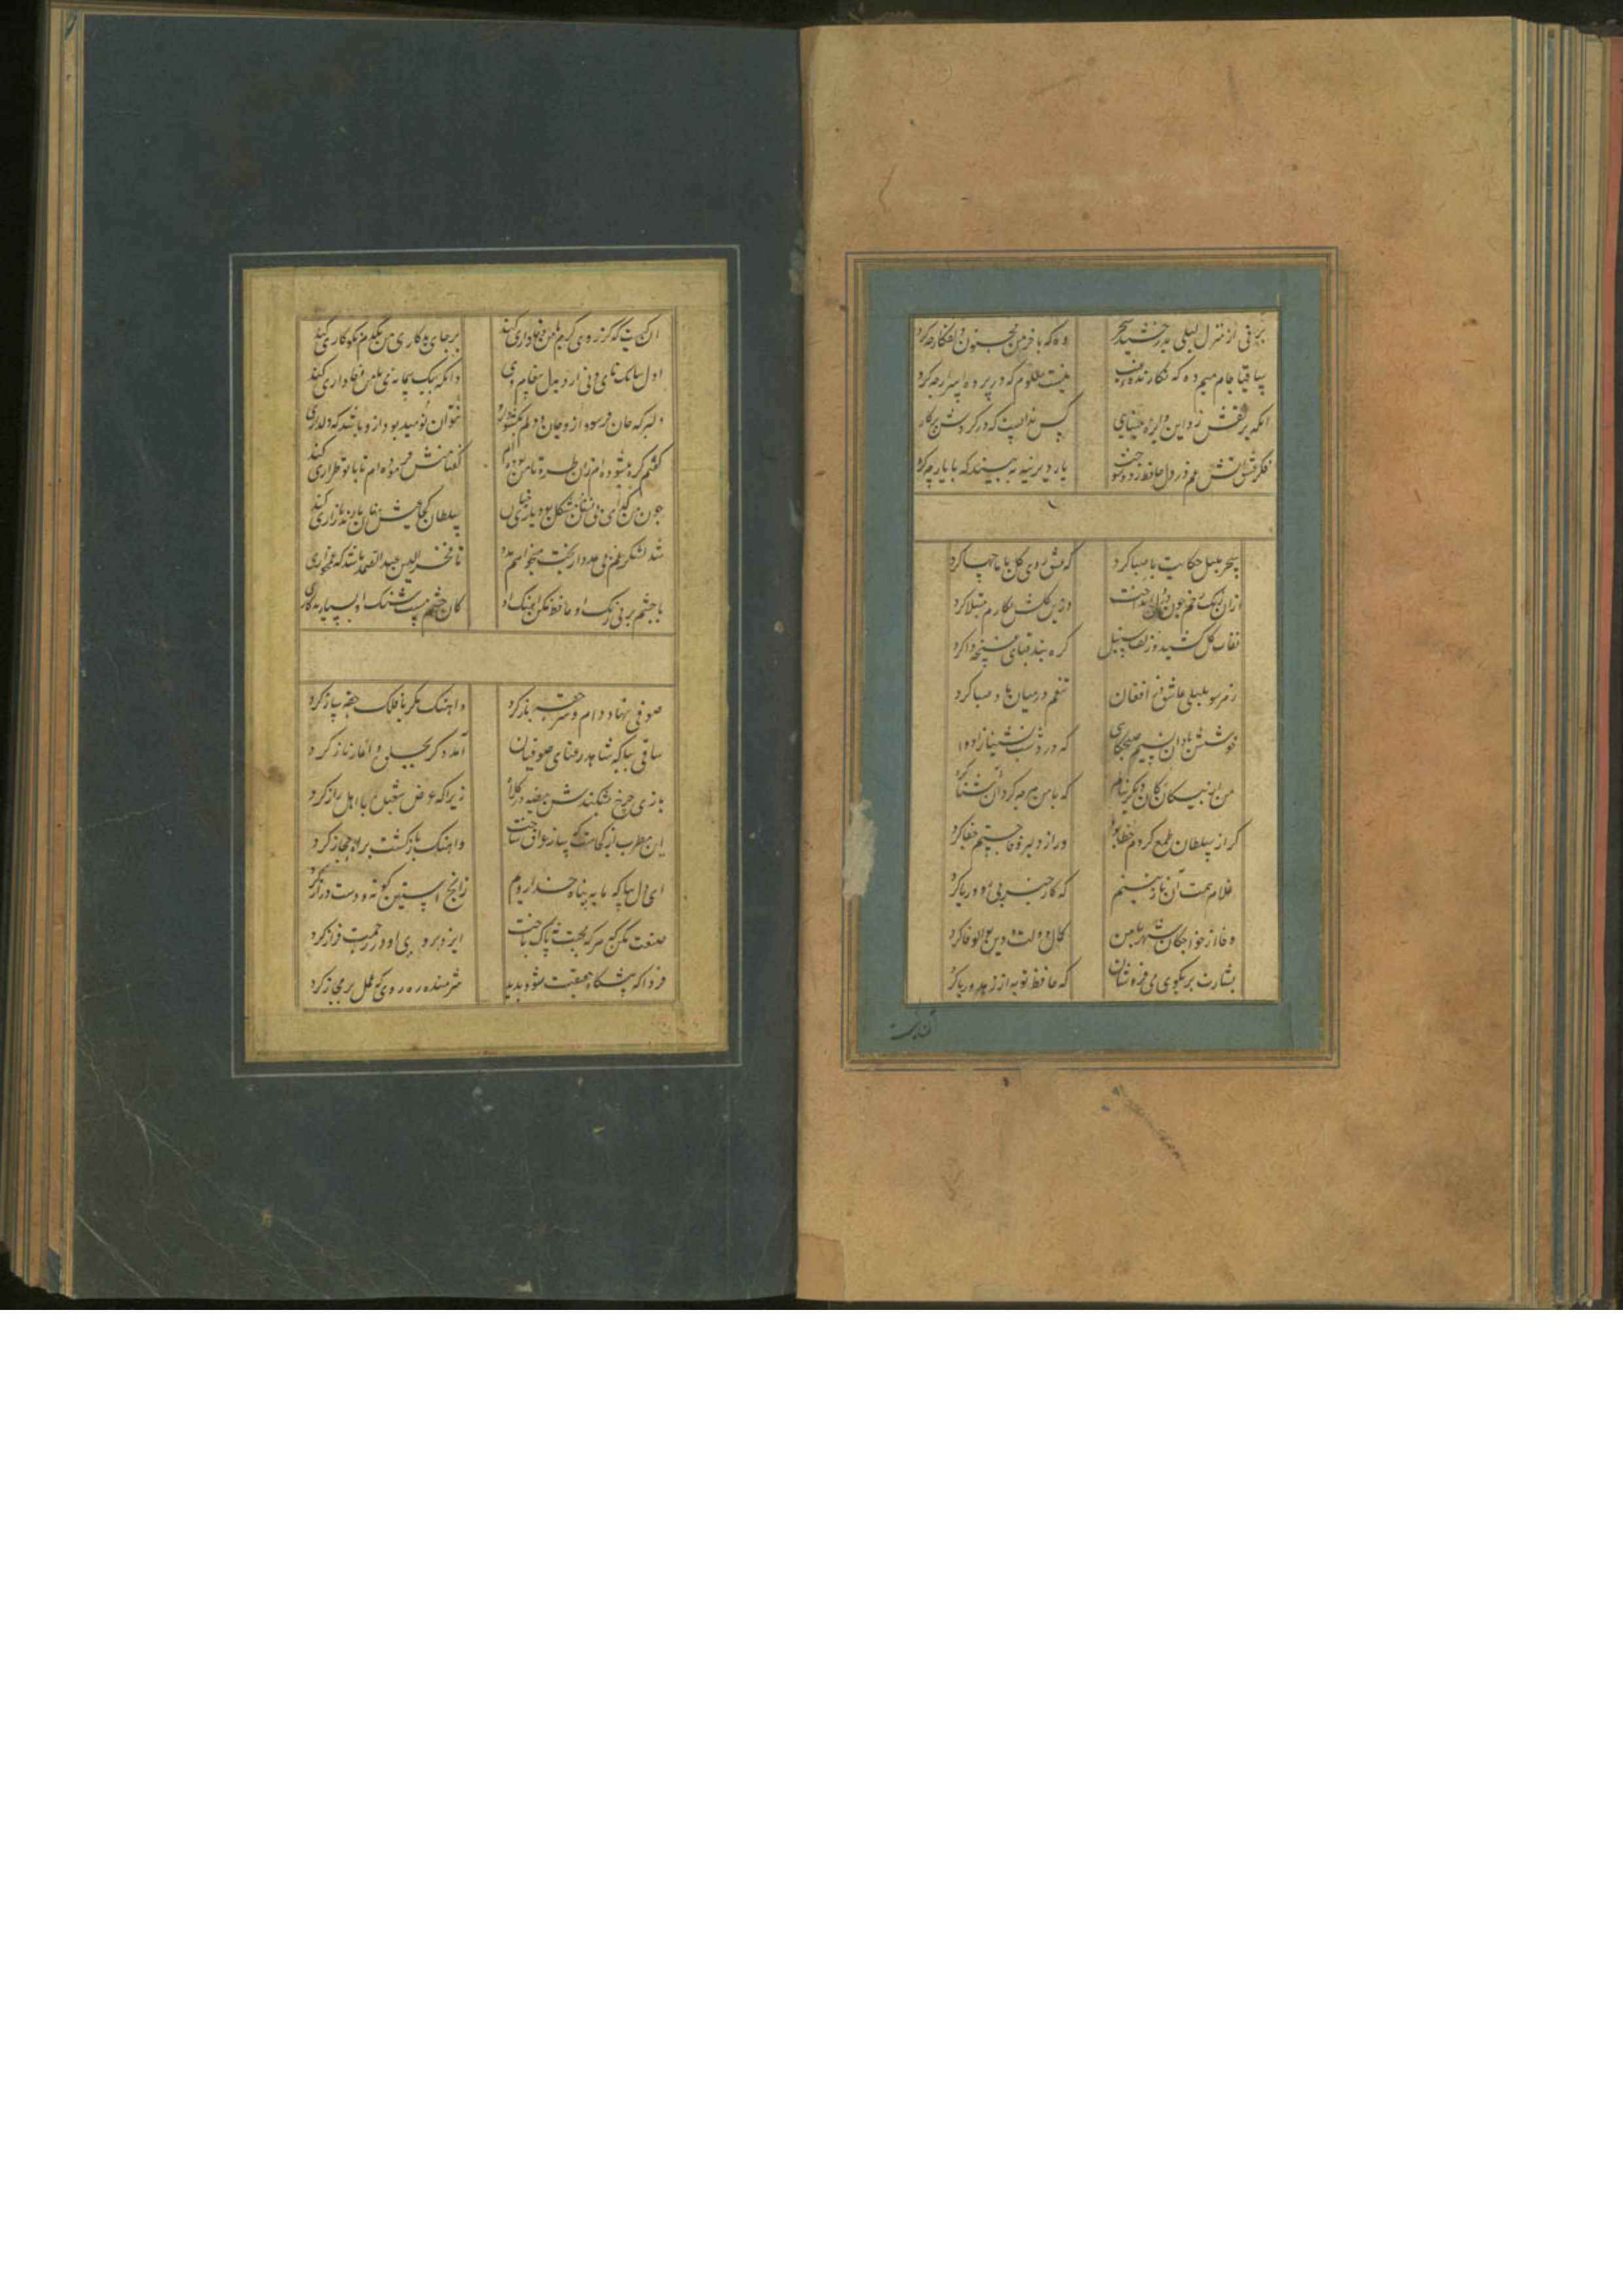 برقی از منزل لیلی بدرخشید سحر وه که با خرمن مجنون دلفکار چه کرد
ساقیا جام میم ده که نکارنده غیب نیست معلوم که در پرده اسرار چه کرد
انکه پر نقش زد این دایره مینایی کس ندانست که در کردش پرکار چه کرد
فکر عشق اتش غم در دل حافظ زد و سوخت یار دیرینه ببینید که با یار چه کرد
سحر بلبل حکایت با صبا کرد که عشق روی کل با ما چها کرد
ازان رنک رخم خون در دل انداخت وزین کلشن بخارم مبتلا کرد
نقاب کل کشید و زلف سنبل کره بند قبای غنچه وا کرد
ز هر سو بلبلی عاشق در افغان تنعم در میان باد صبا کرد
خوشش باد آن نسیم صبحکاهی که درد شب نشینانرا دوا کرد
من از بیکانکان دیکر ننالم که با من هر چه کرد آن آشنا کرد
کر از سلطان طمع کردم خطا بود ور از دلبر وفا جستم جفا کرد
غلام همت آن نازنینم که کار خیر بی روی و ریا کرد
وفا از خواجکان شهر با من کمال دولت و دین بوالوفا کرد
بشارت بر بکوی می فروشان که حافظ توبه از زهد و ریا کرد
ان کیست کز روی کرم با من وفاداری کند بر جای بدکاری من یکدم نکوکاری کند
اول ببانک نای و نی ارد بدل پیغام وی وانکه بیک پیمانه می با من وفاداری کند
دلبر که جان فرسود ازو جان و دلم نکشود ازو نتوان نومید بود ازو باشد که دلداری کند
کفتم کره نکشوده ام زان طره تا من بوده ام کفتا منش فرموده ام تا با تو طراری کند
چون من کدای بی نشان مشکل بود یاری چنان سلطان کجا عیش نهان با رند بازاری کند
شد لشکر غم بی عدد از بخت میخواهم مدد تا فخر الدین عبد الصمد باشد که غمخواری
با چشم پر نیرنک او حافظ مکن اهنک او کان چشم مست شنک او بسیار مکاری
صوفی نهاد دام و سر حقه باز کرد واهنک مکر با فلک حقه باز کرد
ساقی بیا که شاهد رعنای صوفیان آمد دکر بجلوه و آغاز ناز کرد
بازی چرخ بشکندش بیضه در کلاه زیرا که عرض شعبده با اهل راز کرد
این مطرب از کجاست که ساز عراق ساخت واهنک بازکشت براه حجاز کرد
ای دل بیا که ما به پناه خدا رویم زانچ آستین کوته و دست دراز کرد
صنعت مکن که هر که محبت نه پاک باخت ایزد بروی او در رحمت فراز کرد
فردا که پیشکاه حقیقت شود پدید شرمنده ره روی که عمل بر مجاز کرد